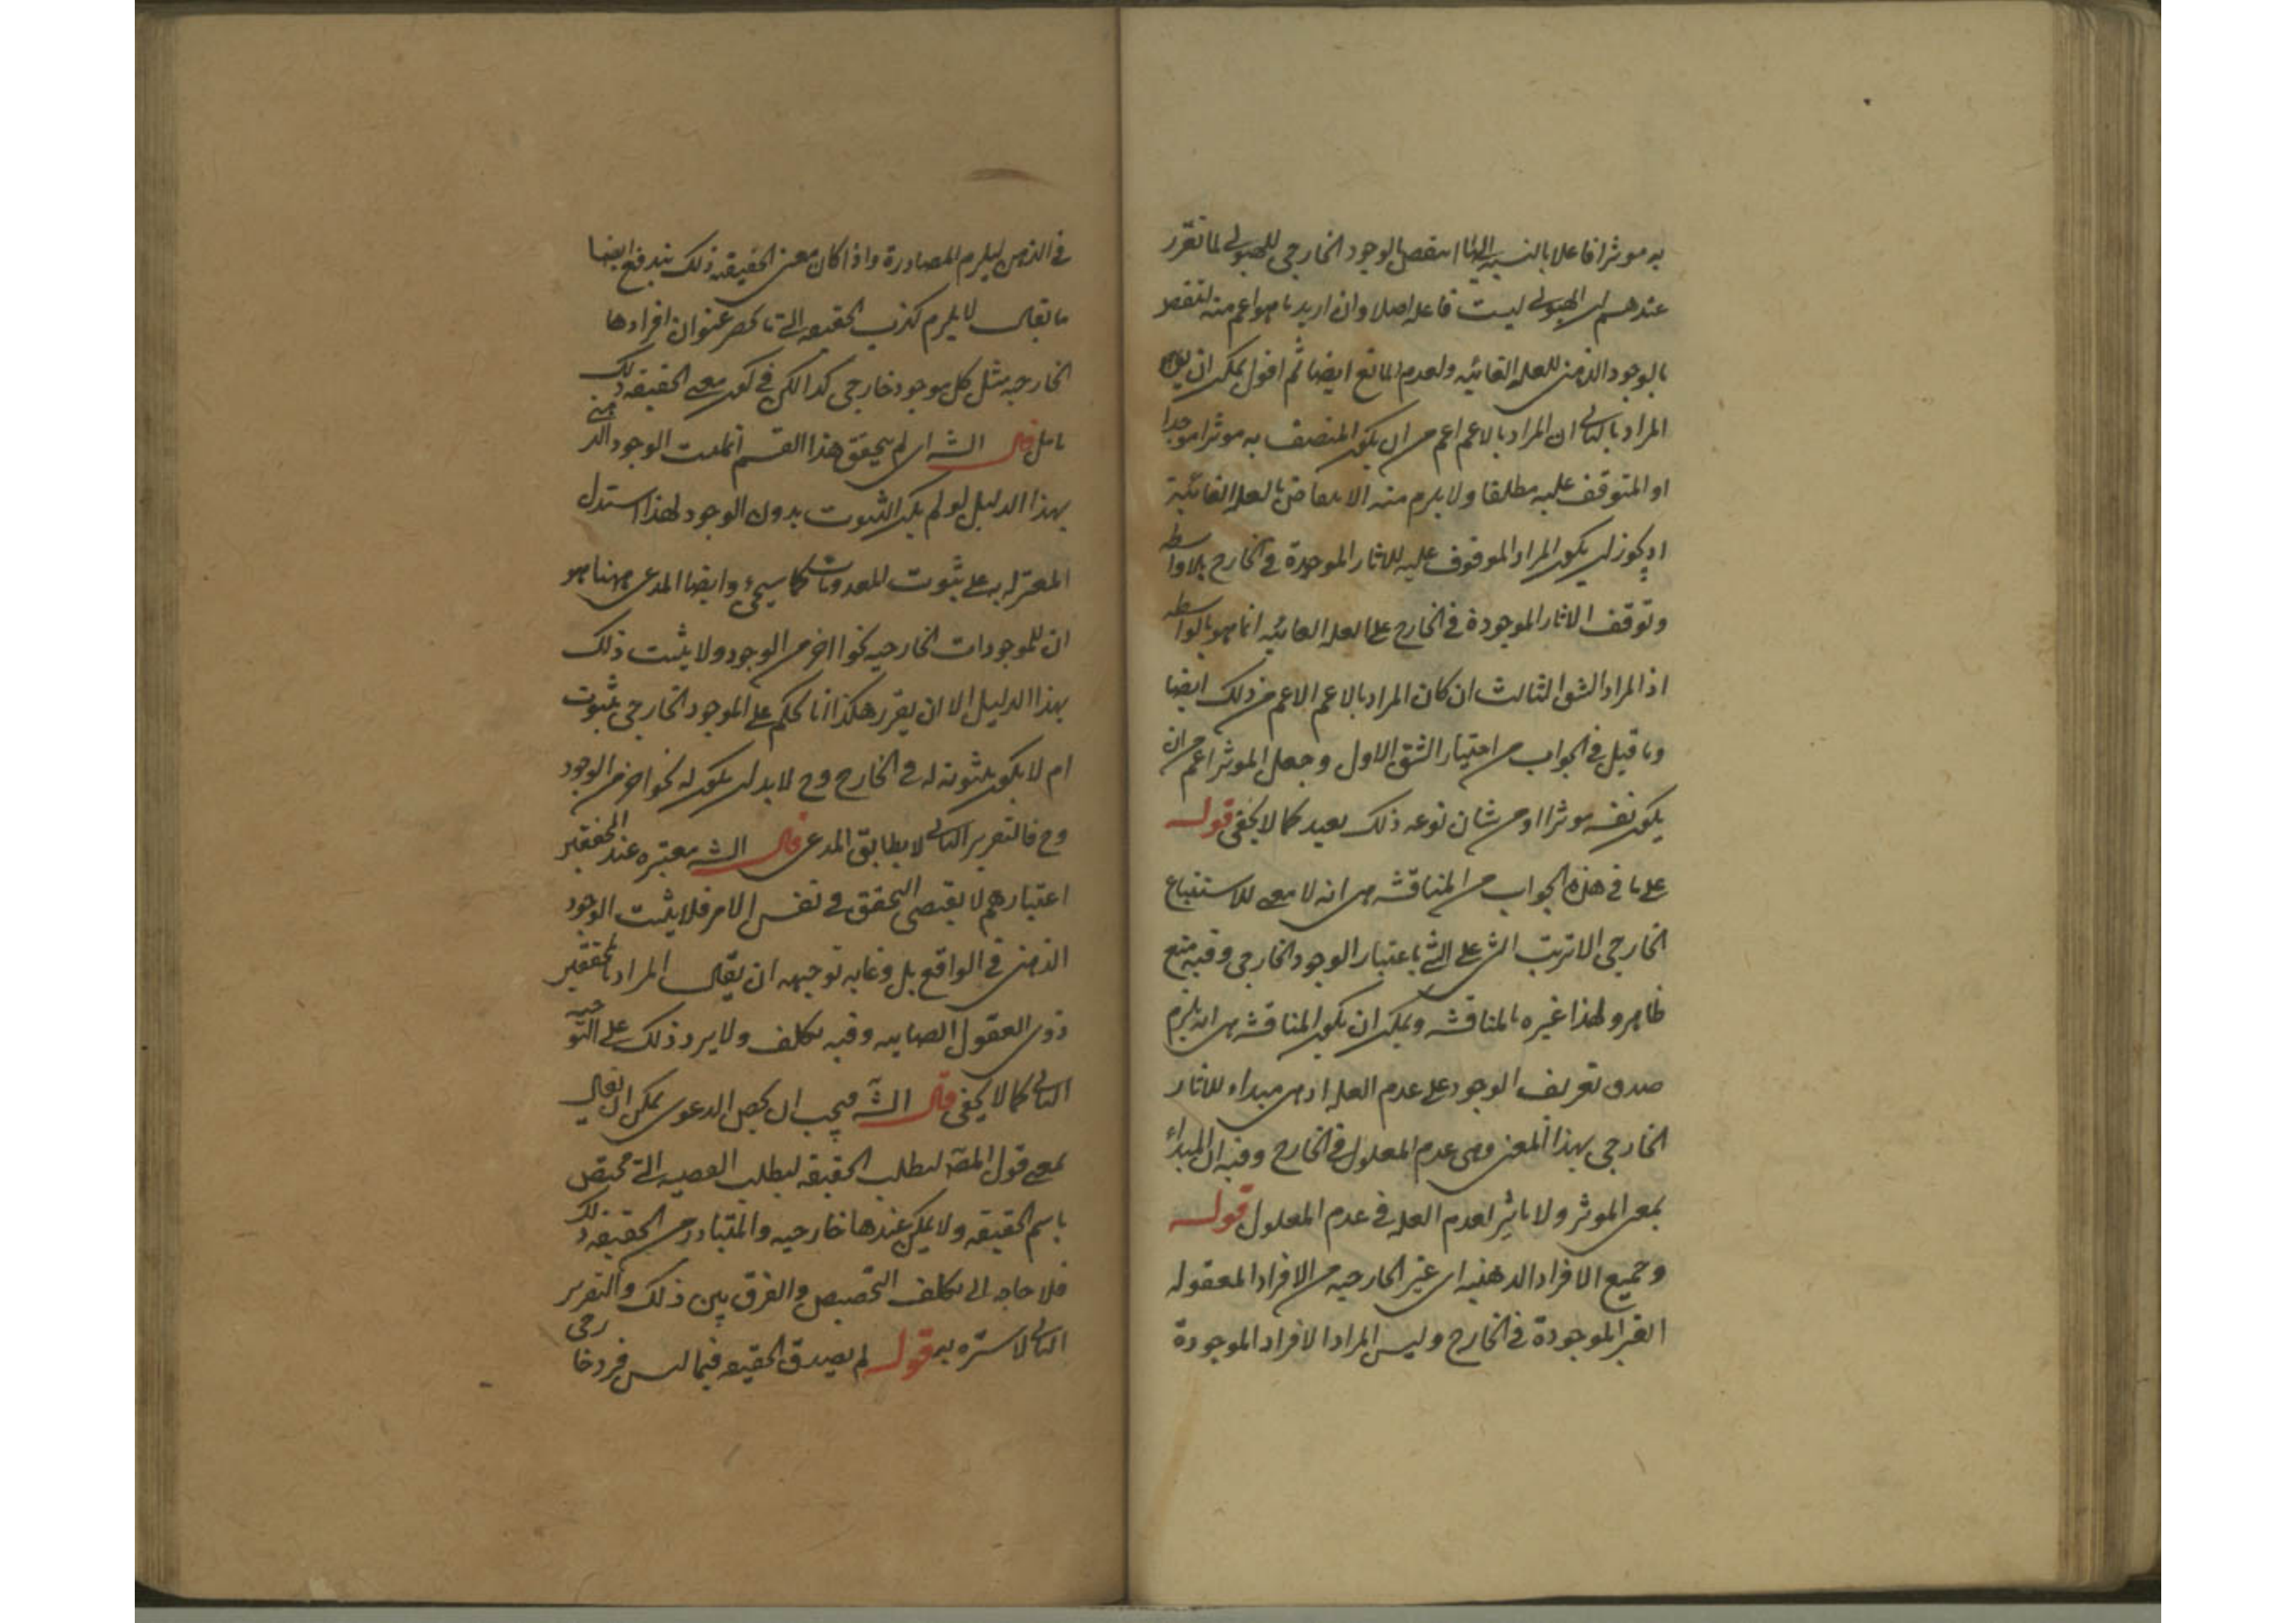 به موثرا فاعلا بالنسبة اليها انتقض بالوجود الخارجي للهيولى لما تقرر
عندهم ان الهيولى ليست فاعلة اصلا وان اريد ما هو اعم منه انتقض
بالوجود الذهني للعلة الغائية ولعدم المانع ايضا ثم اقول يمكن ان يقال
المراد بالثاني ان المراد بالاعم اعم من ان يكون المتصف به موثرا موجدا
او المتوقف عليه مطلقا ولا يلزم منه الانتقاض بالعلة الغائية
اذ يجوز ان يكون المراد الموقوف عليه للاثار الموجودة في الخارج بلا واسطه
وتوقف الاثار الموجودة في الخارج على العلة الغائيه انما هو بالواسطه
اذ المراد الشق الثالث ان كان المراد بالاعم الاعم من ذلك ايضا
وما قيل في الجواب من اختيار الشق الاول وجعل الموثر اعم من ان
يكون نفسه موثرا او من شان نوعه ذلك بعيد كما لا يخفى قوله
على ما في هذه الجواب من المناقشه هي انه لا معنى للاستتباع
الخارجي الا ترتب الشئ على الشئ باعتبار الوجود الخارجي وفيه منع
ظاهر ولهذا غيره بالمناقشه ويمكن ان يكون المناقشه هي انه يلزم
صدق تعريف الوجود على عدم العلة اذ هي مبداء للاثار
الخارجي بهذا المعنى وهي عدم المعلول في الخارج وفيه ان المبداء
بمعنى الموثر ولا تاثير لعدم العلة في عدم المعلول قوله
وجميع الافراد الذهنيه اي غير الخارجيه من الافراد المعقوله
الغير الموجودة في الخارج وليس المراد الافراد الموجودة
في الذهن ليلزم المصادرة واذا كان معنى الحقيقة ذلك يندفع ايضا
ما يقال لا يلزم كذب الحقيقيه التي تحصر عنوان افرادها
الخارجيه مثل كل موجود خارجي كذا لكن في كون معنى الحقيقة ذلك
تامل قال الشه اي لم يتحقق هذا القسم الوجود الذهني
بهذا الدليل لو لم يكن الثبوت بدون الوجود لهذا استدل
المعتزله به على ثبوت المعدومات كما سيجئ وايضا المدعى ههنا هو
ان للموجودات الخارجيه نحوا اخر من الوجود ولا يثبت ذلك
بهذا الدليل الا ان يقرر هكذا انا نحكم على الموجود الخارجي بثبوت
امر لا يكون ثبوته له في الخارج وح لا بد ان يكون له نحو اخر من الوجود
وح فالتقرير الثاني لا يطابق المدعى قال الشه معتبره عند المحققين
اعتبارهم لا يقتضي التحقق في نفس الامر فلا يثبت الوجود
الذهني في الواقع بل وغايه توجيهه ان يقال المراد بالمحققين
ذوي العقول الصايبه وفيه تكلف ولا يرد ذلك على التوجيه
الثاني كما لا يخفى قال الشه فيجب ان يحصل الدعوى يمكن ان يقال
بمعنى قول المصه لبطلت الحقيقه لبطلت القضيه التي تختص
باسم الحقيقه ولا يمكن عندها خارجيه والمتبادر من الحقيقه ذلك
فلا حاجه الى تكلف التخصيص والفرق بين ذلك والتقرير
الثاني لا ستره به قوله لم يصدق الحقيقيه فيما ليس فرد خارجي